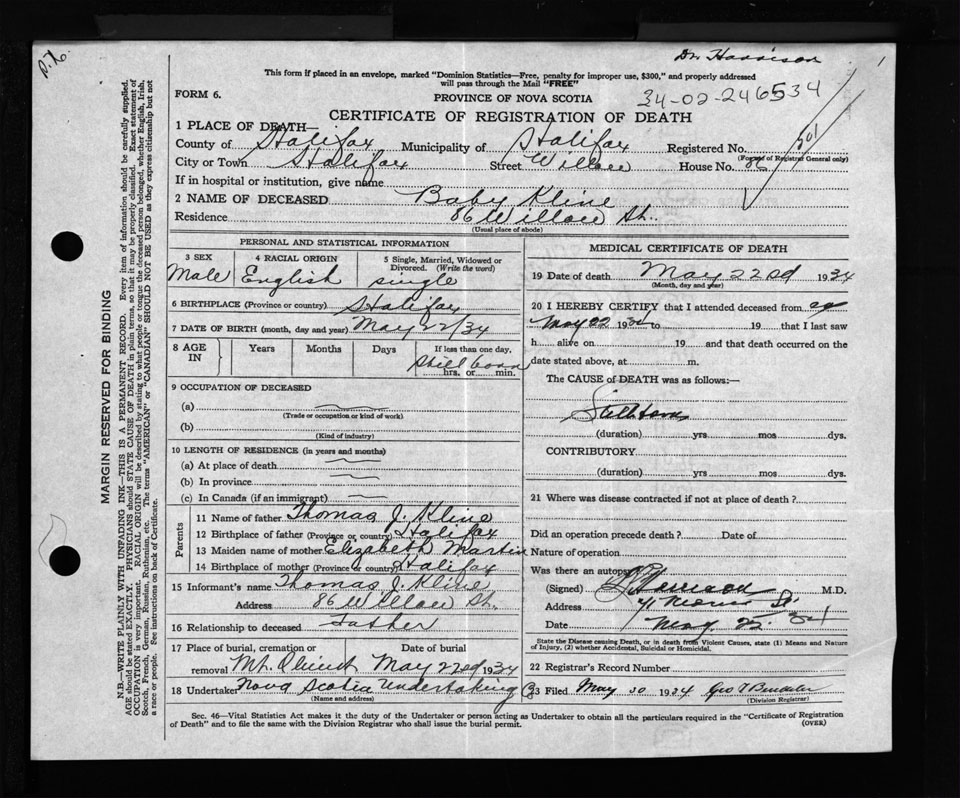 P.X.
Dr. Harrison
This form if placed in an envelope, marked "Dominion Statistics—Free, penalty for improper use, $300," and properly addressed
will pass through the Mail "FREE"
FORM 6.
PROVINCE OF NOVA SCOTIA
34-02-246534
CERTIFICATE OF REGISTRATION OF DEATH
1 PLACE OF DEATH—
County of Halifax Municipality of Halifax Registered No. 501
(For use of Registrar General only)
City or Town Halifax Street Willow House No. 86
If in hospital or institution, give name
2 NAME OF DECEASED Baby Kline
Residence 86 Willow St.
(Usual place of abode)
PERSONAL AND STATISTICAL INFORMATION
3 SEX Male
4 RACIAL ORIGIN English
5 Single, Married, Widowed or Divorced. (Write the word) single
6 BIRTHPLACE (Province or country) Halifax
7 DATE OF BIRTH (month, day and year) May 22/34
8 AGE IN Years Months Days If less than one day, Still born hrs. or min.
9 OCCUPATION OF DECEASED
(a)
(Trade or occupation or kind of work)
(b)
(Kind of industry)
10 LENGTH OF RESIDENCE (in years and months)
(a) At place of death
(b) In province
(c) In Canada (if an immigrant)
Parents
11 Name of father Thomas J. Kline
12 Birthplace of father (Province or country) Halifax
13 Maiden name of mother Elizabeth Martin
14 Birthplace of mother (Province or country) Halifax
15 Informant's name Thomas J. Kline
Address 86 Willow St.
16 Relationship to deceased father
17 Place of burial, cremation or removal Mt. Olivet Date of burial May 22nd 1934
18 Undertaker Nova Scotia Undertaking Co
(Name and address)
MEDICAL CERTIFICATE OF DEATH
19 Date of death May 22nd 1934
(Month, day and year)
20 I HEREBY CERTIFY that I attended deceased from
May 22 1934 to 19 that I last saw
h alive on 19 and that death occurred on the
date stated above, at m.
The CAUSE of DEATH was as follows:—
Stillborn
(duration) yrs mos dys.
CONTRIBUTORY
(duration) yrs mos dys.
21 Where was disease contracted if not at place of death?
Did an operation precede death? Date of
Nature of operation
Was there an autopsy
(Signed) M.D.
Address 41 Morris St.
Date May 22 34
State the Disease causing Death, or in death from Violent Causes, state (1) Means and Nature
of Injury, (2) whether Accidental, Suicidal or Homicidal.
22 Registrar's Record Number
23 Filed May 30 1934 Geo
(Division Registrar)
Sec. 46—Vital Statistics Act makes it the duty of the Undertaker or person acting as Undertaker to obtain all the particulars required in the "Certificate of Registration
of Death" and to file same with the Division Registrar who shall issue the burial permit. (OVER)
MARGIN RESERVED FOR BINDING
N.B.—WRITE PLAINLY WITH UNFADING INK—THIS IS A PERMANENT RECORD. Every item of information should be carefully supplied.
AGE should be stated EXACTLY. PHYSICIANS should STATE CAUSE OF DEATH in plain terms, so that it may be properly classified. Exact statement of
OCCUPATION is very important. RACIAL ORIGIN will be described by stating to what people or tongue the deceased person belonged, whether English, Irish,
Scotch, French, German, Russian, Ruthenian, etc. The terms "AMERICAN" or "CANADIAN" SHOULD NOT BE USED as they express citizenship but not
a race or people. See instructions on back of Certificate.